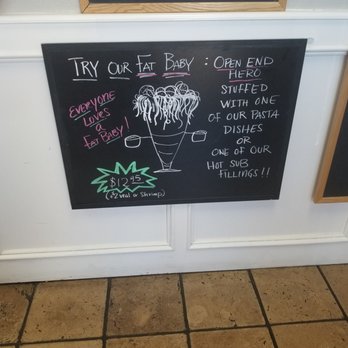 TRY OUR FAT BABY : OPEN END
HERO
STUFFED
WITH ONE
OF OUR PASTA
DISHES
OR
ONE OF OUR
HOT SUB
FILLINGS!!
EVERYONE
LOVES
a
FAT BABY!
$12.95
(+2 veal or shrimp)